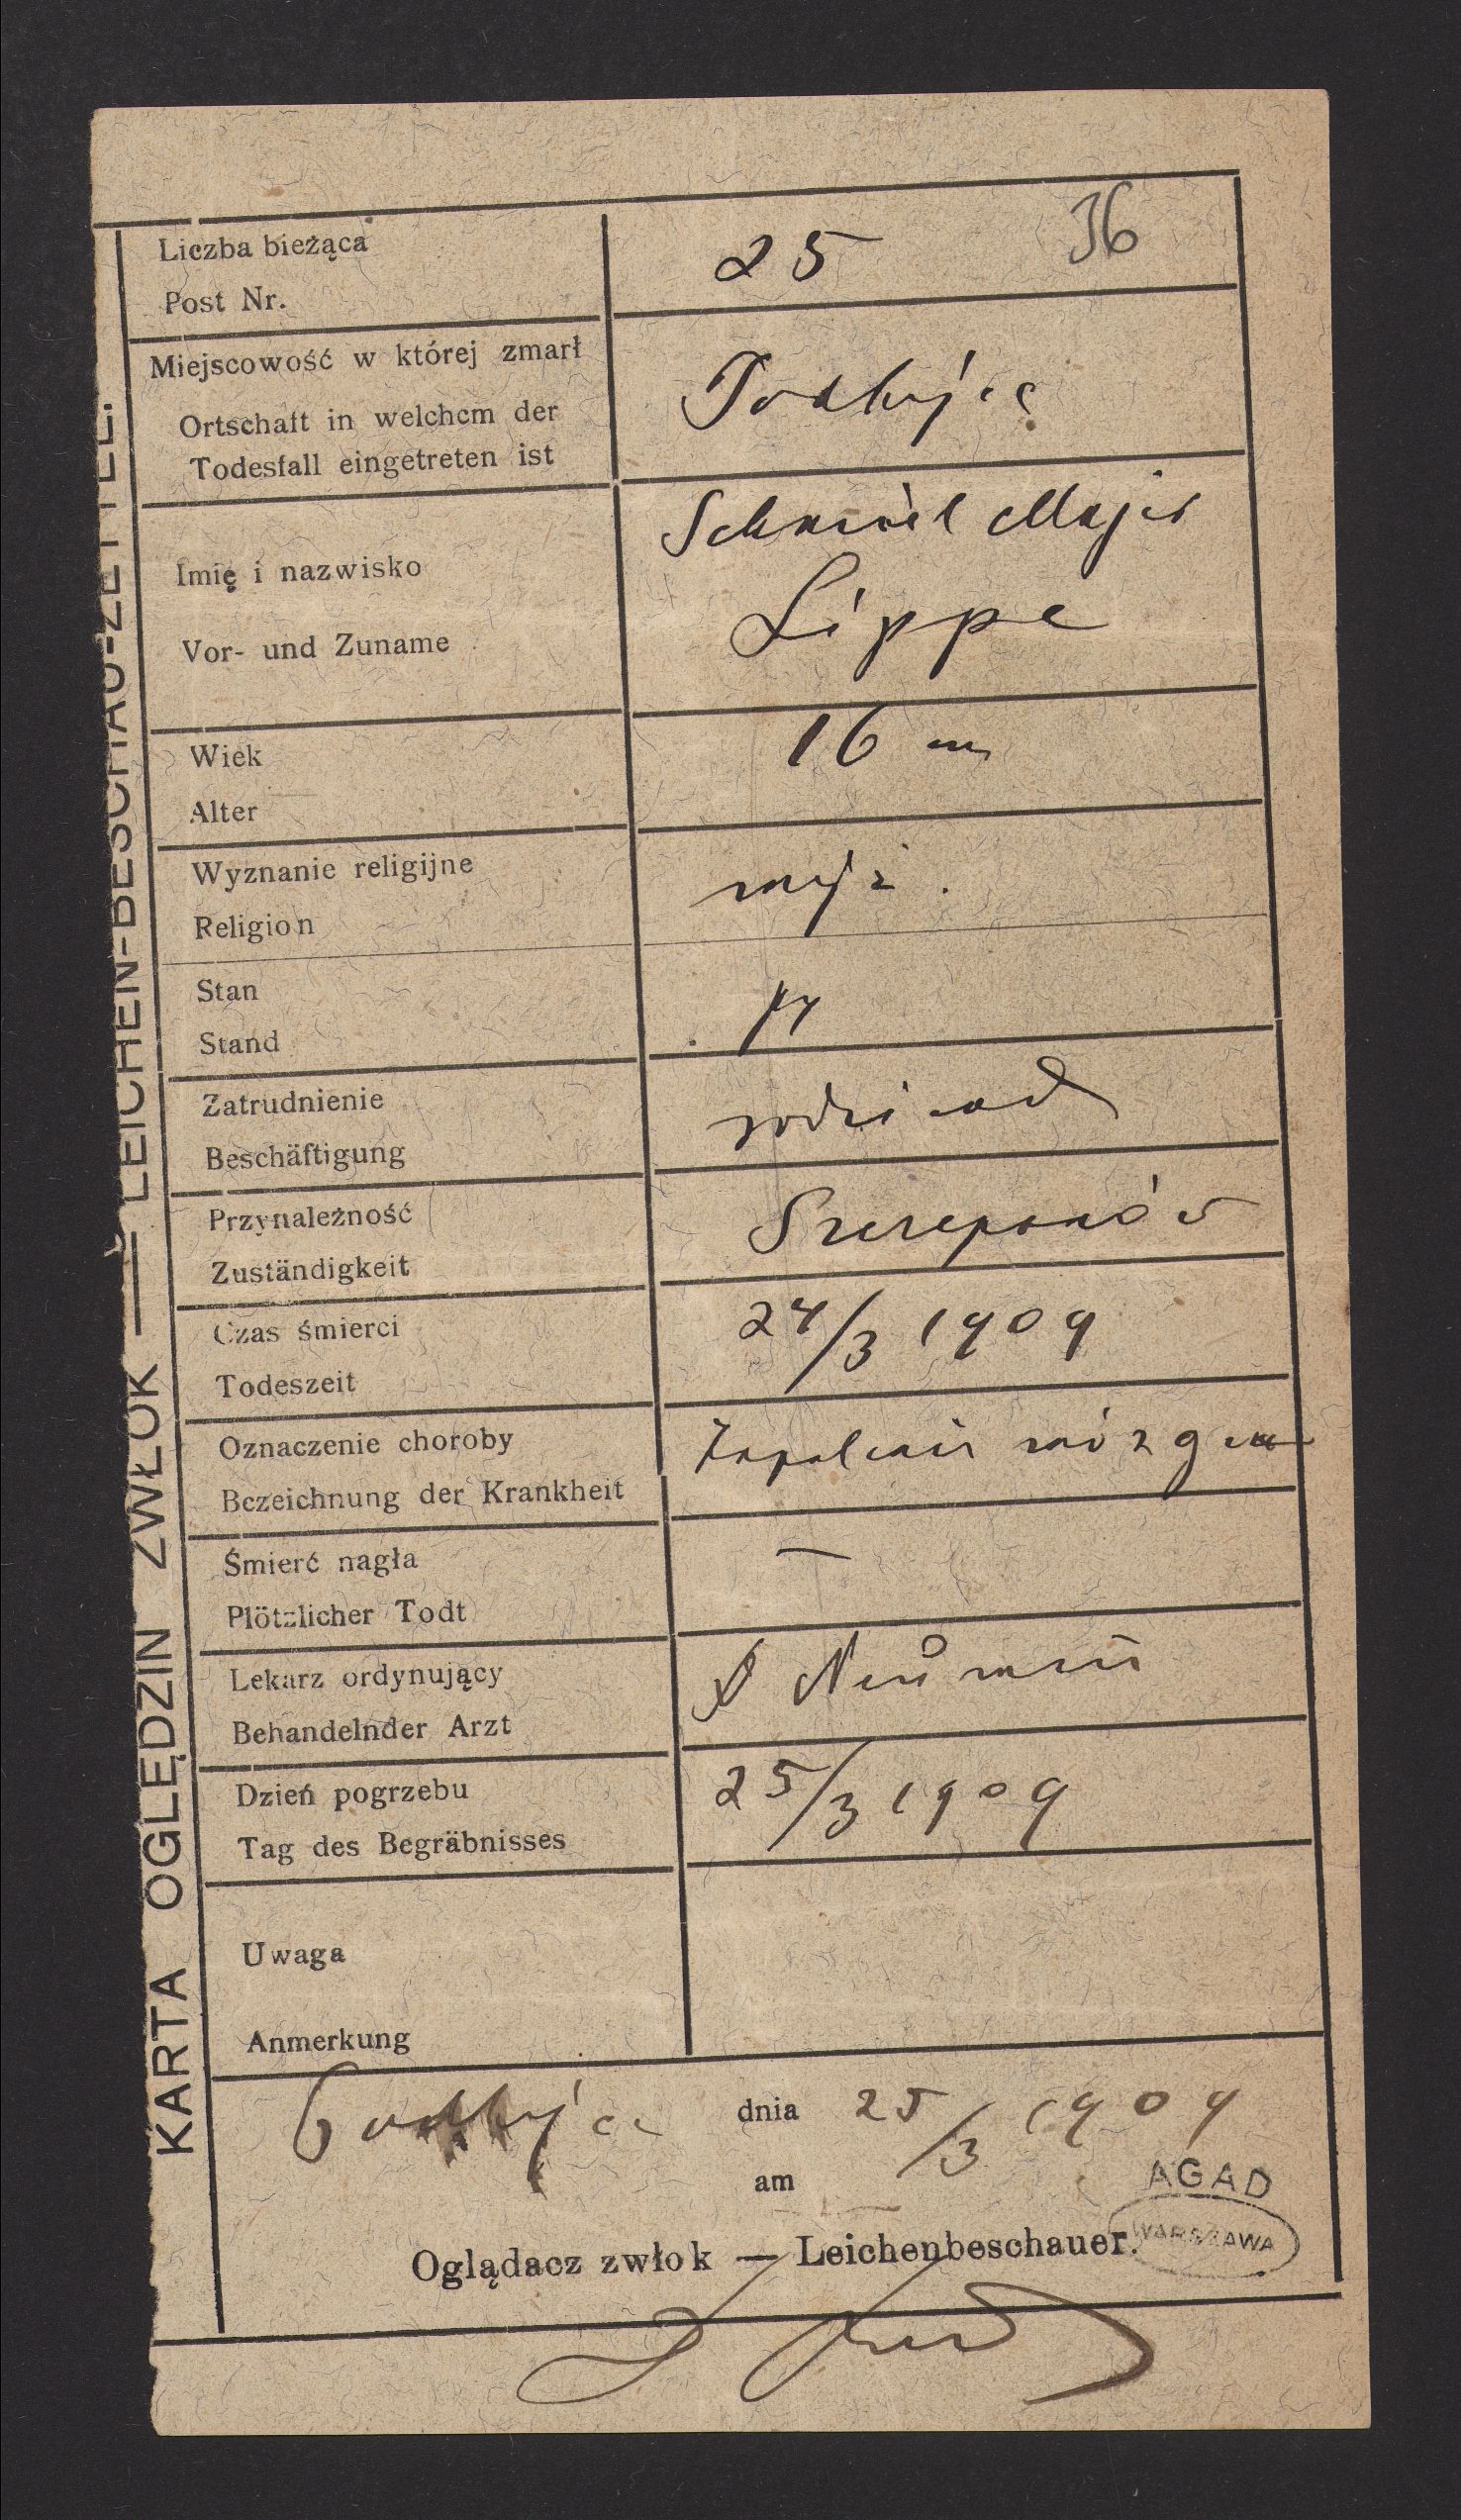 KARTA OGLĘDZIN ZWŁOK — LEICHEN-BESCHAU-ZETTEL.
Liczba bieżąca
Post Nr.
25
36
Miejscowość w której zmarł
Ortschaft in welchem der
Todesfall eingetreten ist
Podhajce
Imię i nazwisko
Vor- und Zuname
Schmiel Majer
Lippe
Wiek
Alter
16 m
Wyznanie religijne
Religion
mojż.
Stan
Stand
Zatrudnienie
Beschäftigung
Przynależność
Zuständigkeit
Szczepanów
Czas śmierci
Todeszeit
24/3 1909
Oznaczenie choroby
Bezeichnung der Krankheit
Zapalenie mózgu
Śmierć nagła
Plötzlicher Todt
—
Lekarz ordynujący
Behandelnder Arzt
Dr Neuman
Dzień pogrzebu
Tag des Begräbnisses
25/3 1909
Uwaga
Anmerkung
Podhajce dnia 25/3 1909
am
AGAD
WARSZAWA
Oglądacz zwłok — Leichenbeschauer.